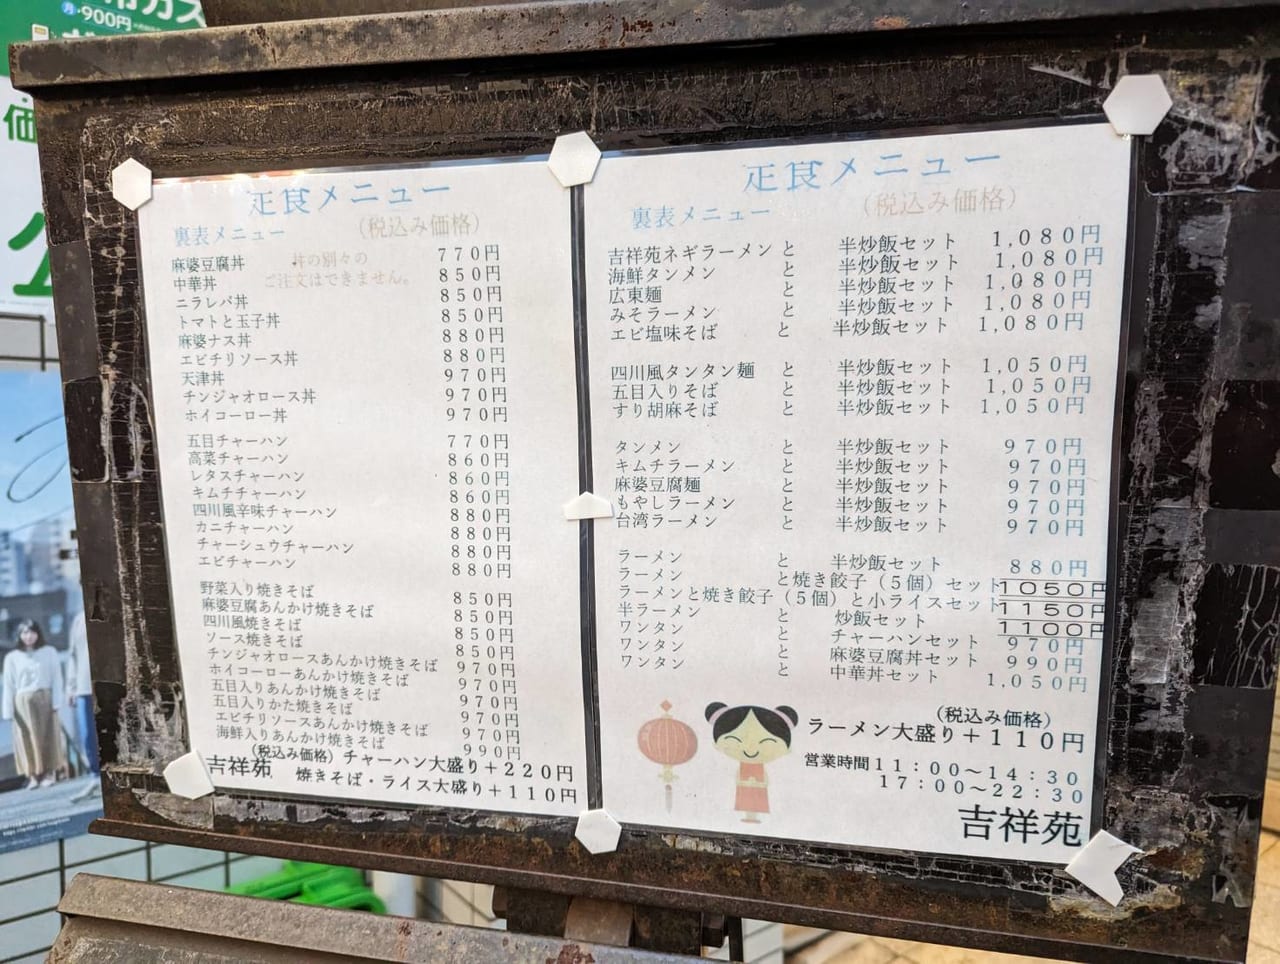 月・900円
価
定食メニュー
裏表メニュー (税込み価格)
麻婆豆腐丼 丼の別々の 770円
中華丼 ご注文はできません。 850円
ニラレバ丼 850円
トマトと玉子丼 850円
麻婆ナス丼 880円
エビチリソース丼 880円
天津丼 970円
チンジャオロース丼 970円
ホイコーロー丼 970円
五目チャーハン 770円
高菜チャーハン 860円
レタスチャーハン 860円
キムチチャーハン 860円
四川風辛味チャーハン 880円
カニチャーハン 880円
チャーシュウチャーハン 880円
エビチャーハン 880円
野菜入り焼きそば 850円
麻婆豆腐あんかけ焼きそば 850円
四川風焼きそば 850円
ソース焼きそば 850円
チンジャオロースあんかけ焼きそば 970円
ホイコーローあんかけ焼きそば 970円
五目入りあんかけ焼きそば 970円
五目入りかた焼きそば 970円
エビチリソースあんかけ焼きそば 970円
海鮮入りあんかけ焼きそば 990円
(税込み価格) チャーハン大盛り+220円
吉祥苑 焼きそば・ライス大盛り+110円
定食メニュー
裏表メニュー (税込み価格)
吉祥苑ネギラーメン と 半炒飯セット 1,080円
海鮮タンメン と 半炒飯セット 1,080円
広東麺 と 半炒飯セット 1,080円
みそラーメン と 半炒飯セット 1,080円
エビ塩味そば と 半炒飯セット 1,080円
四川風タンタン麺 と 半炒飯セット 1,050円
五目入りそば と 半炒飯セット 1,050円
すり胡麻そば と 半炒飯セット 1,050円
タンメン と 半炒飯セット 970円
キムチラーメン と 半炒飯セット 970円
麻婆豆腐麺 と 半炒飯セット 970円
もやしラーメン と 半炒飯セット 970円
台湾ラーメン と 半炒飯セット 970円
ラーメン と 半炒飯セット 880円
ラーメン と焼き餃子(5個)セット 1050円
ラーメンと焼き餃子(5個)と小ライスセット 1150円
半ラーメン と 炒飯セット 1100円
ワンタン と チャーハンセット 970円
ワンタン と 麻婆豆腐丼セット 990円
ワンタン と 中華丼セット 1,050円
(税込み価格)
ラーメン大盛り+110円
営業時間11:00~14:30
17:00~22:30
吉祥苑